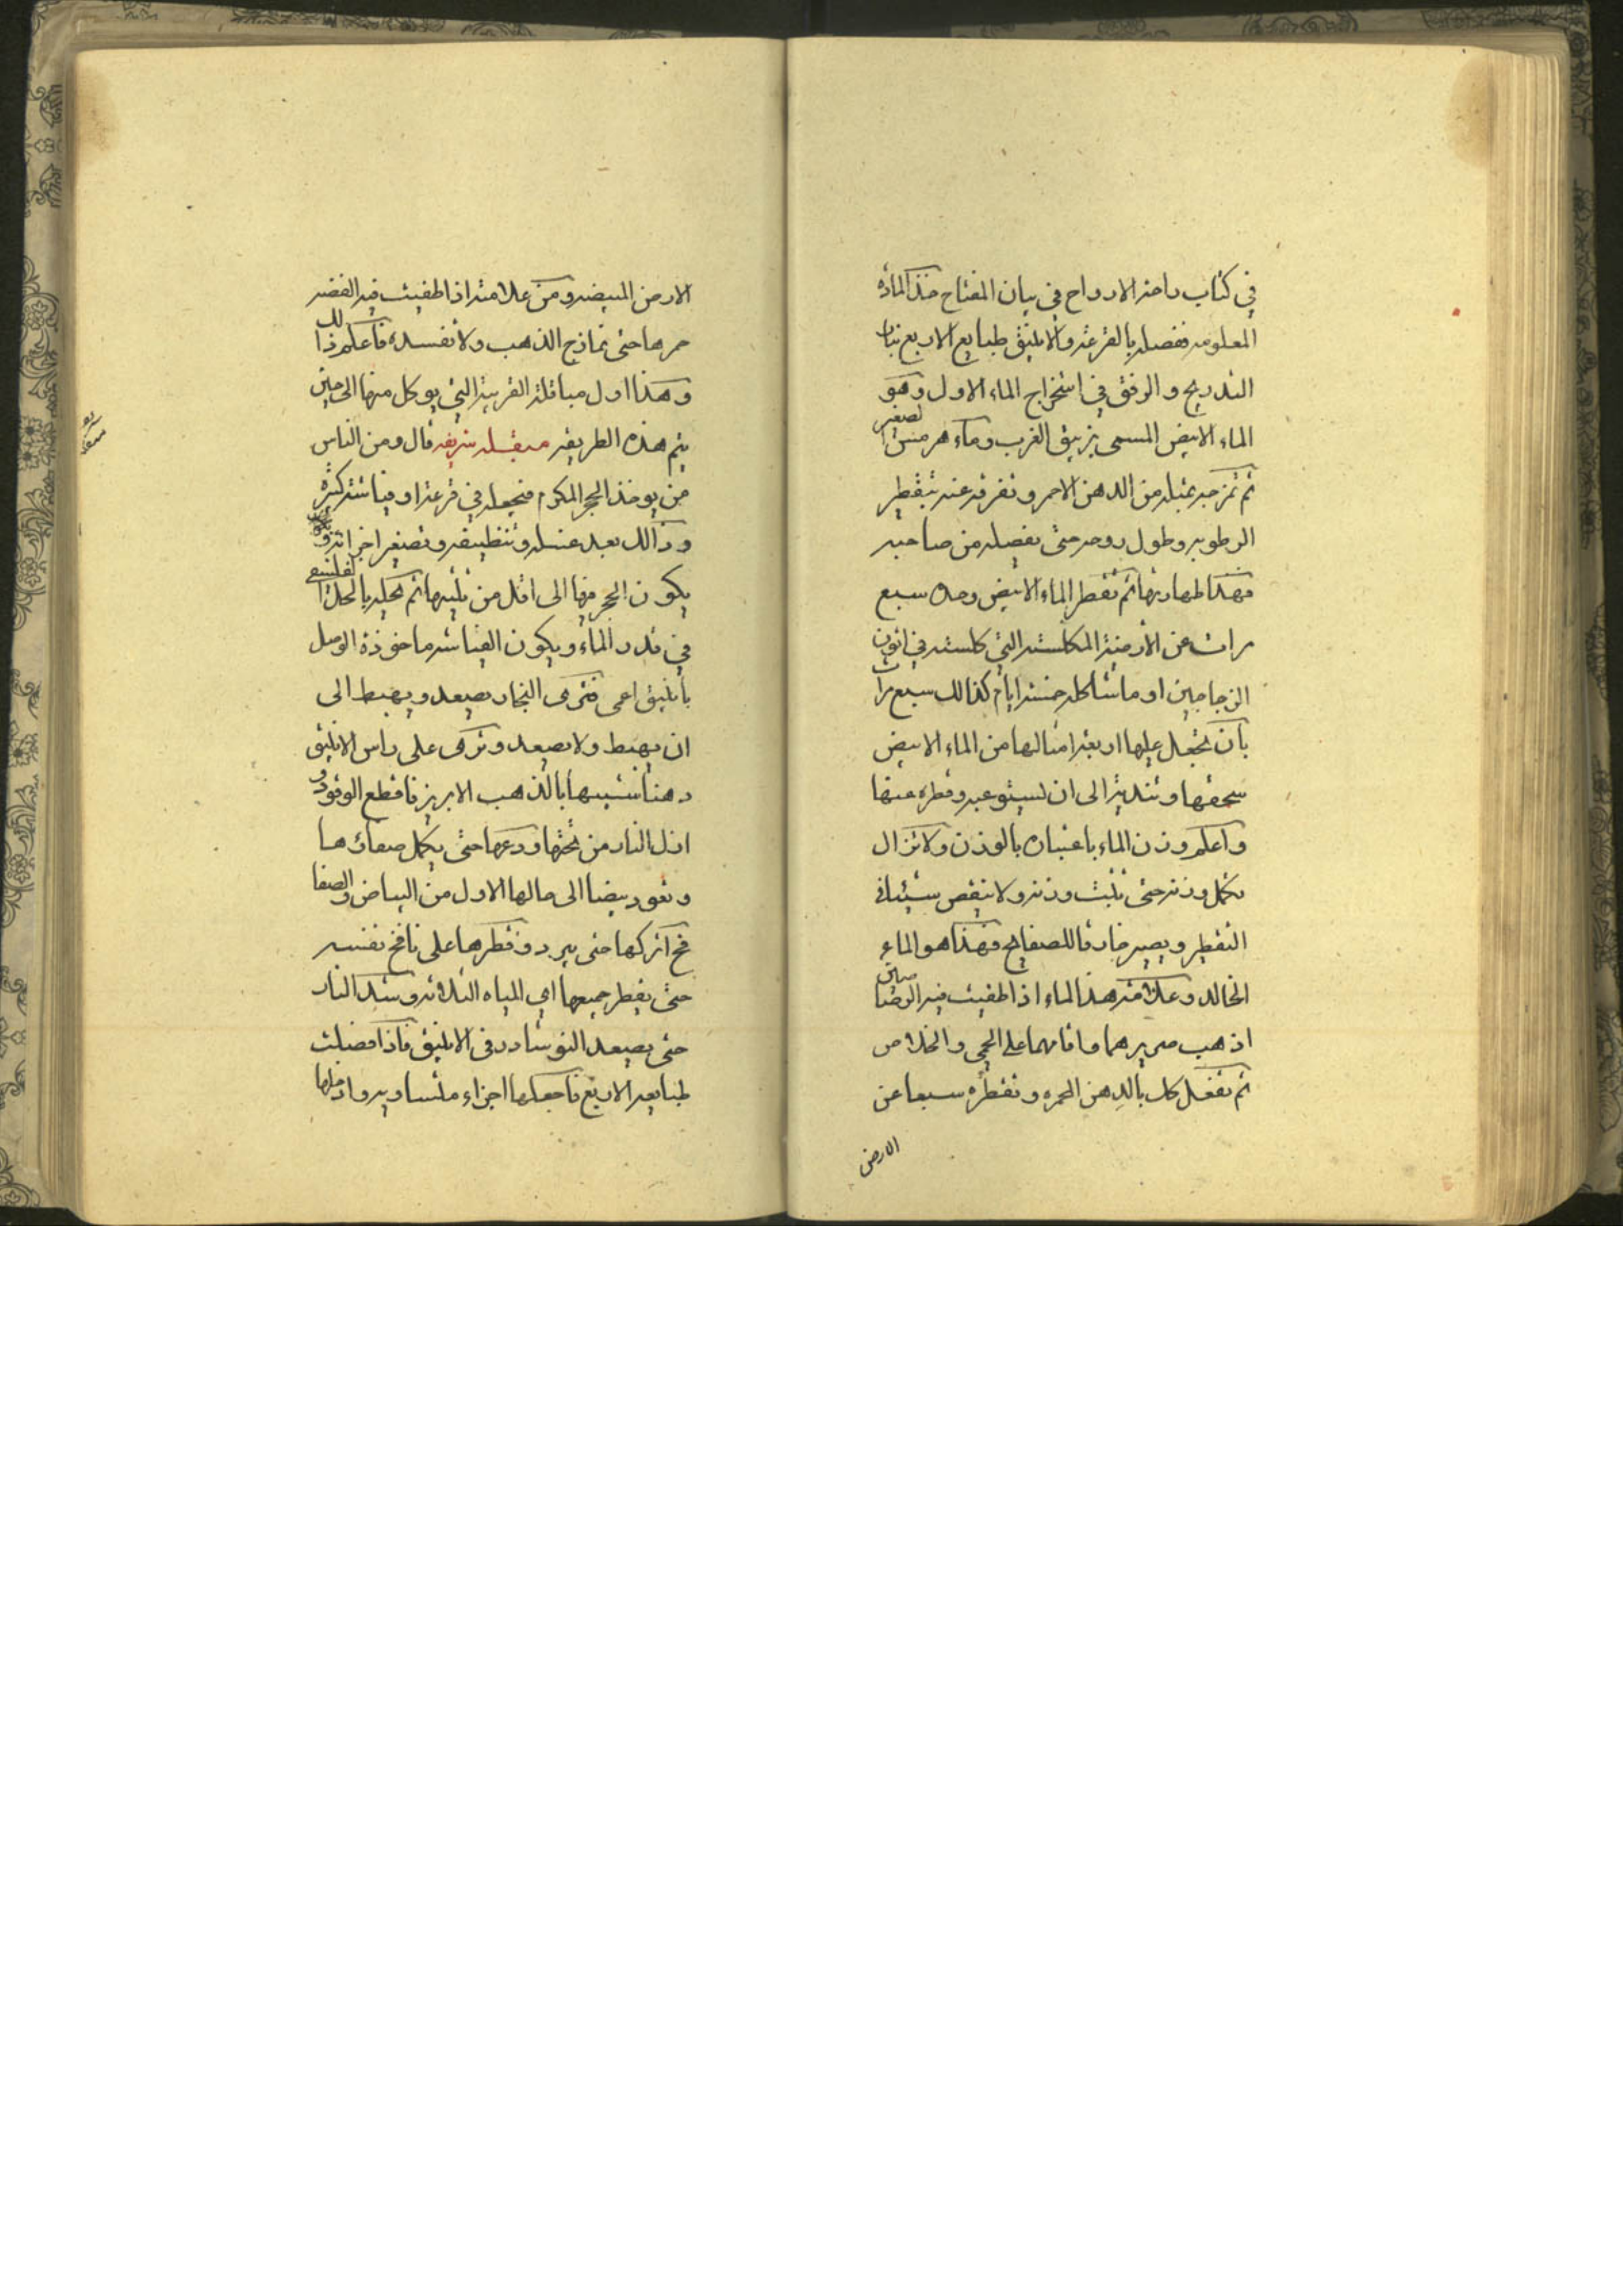 في كتاب راحة الارواح في بيان المفتاح خذ المادة
المعلومه ففصله بالقرعة والانبيق طبايع الاربع بنار
التدريج والرفق في استخراج الماء الاول وهو
الماء الابيض المسمى بزيبق الغرب وماء هرمس الصغير
ثم تمزجه بمثله من الدهن الاحمر وتفرقه عنه بتقطير
الرطوبه وطول روحه حتى يفصله من صاحبه
فهذا طهارتها ثم تقطر الماء الابيض وحده سبع
مرات عن الارضية المكلسة التي كلسته في اتون
الزجاجين او ما شاكله خمسة ايام كذالك سبع مرات
بان تجعل عليها اربعة امثالها من الماء الابيض
سحقها وتنديتا الى ان تستوعبه وقطره عنها
واعلم وزن الماء باعتباره بالوزن ولا تزال
تكمل وزنه حتى تثبت وزنه ولا ينقص شيئا في
التقطير ويصير خارقا للصفايح فهذا هو الماء
الخالد وعلامة هذا الماء اذا طفيت فيه الرصاصين
اذهب صريرهما واقامهما على الحمى والخلاص
ثم تفعل كك بالدهن الحمره وتقطره سبعا عن
الارض
الارض المبيضه ومن علامته اذا طفيت فيه الفضه
حمرها حتى تمازج الذهب ولا تفسده فاعلم ذالك
وهذا اول مباقلة القريبة التي يوكل منها الى حين
يتم هذه الطريقه مبقله شريفه قال ومن الناس
من يوخذ الحجر المكرم فيجعله في قرعة او فياشة كثيرة
وذالك بعد غسله وتنظيفه وتصغير اجزائه و
يكون الحجر فيها الى اقل من ثلثيها ثم تحله بالحل الفلسفي
في قدر الماء ويكون الفياشه ماخوذة الوصل
بانبيق اعمى فترى البخار يصعد ويهبط الى
ان يهبط ولا يصعد وترى على راس الانبيق
دهنا شبيها بالذهب الابريز فاقطع الوقود و
ازل النار من تحتها ودعها حتى يكمل صفاؤها
وتعود بيضا الى حالها الاول من البياض والصفا
فح اتركها حتى يبرد وقطرها على نافخ نفسه
حتى يقطر جميعها اي المياه الثلاثه وشد النار
حتى يصعد النوشادر في الانبيق فاذا فصلت
طبايعه الاربع فاجعلها اجزاء متساويه واد